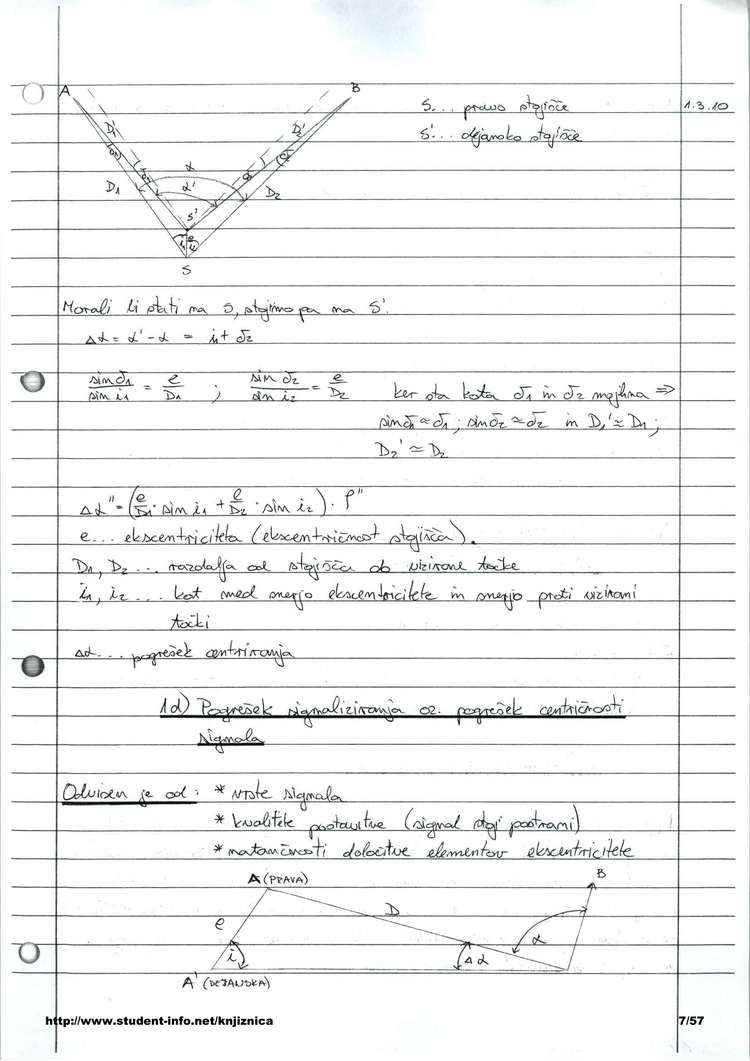 A
B
S... pravo stojišče
1.3.10
S'... dejansko stojišče
D₁'
D₂'
δ₁
δ₁
δ₂
δ₂
α
α'
D₁
D₂
S'
i₁
e
i₂
S
Morali bi stati na S, stojimo pa na S'.
Δα = α' - α = δ₁ + δ₂
sin δ₁ / sin i₁ = e / D₁ ; sin δ₂ / sin i₂ = e / D₂ ker sta kota δ₁ in δ₂ majhna ⇒
sin δ₁ ≈ δ₁ ; sin δ₂ ≈ δ₂ in D₁' ≈ D₁ ;
D₂' ≃ D₂
Δα" = (e/D₁ · sin i₁ + e/D₂ · sin i₂) · ρ"
e... ekscentriciteta (ekscentričnost stojišča).
D₁, D₂ ... razdalja od stojišča do vizirane točke
i₁, i₂ ... kot med smerjo ekscentricitete in smerjo proti vizirani
točki
Δα... pogrešek centriranja
1d) Pogrešek signaliziranja oz. pogrešek centričnosti
signala
Odvisen je od: * vrste signala
* kvalitete postavitve (signal stoji postrani)
* natančnosti določitve elementov ekscentricitete
A (PRAVA)
B
D
e
α
i
Δα
A' (DEJANSKA)
http://www.student-info.net/knjiznica
7/57